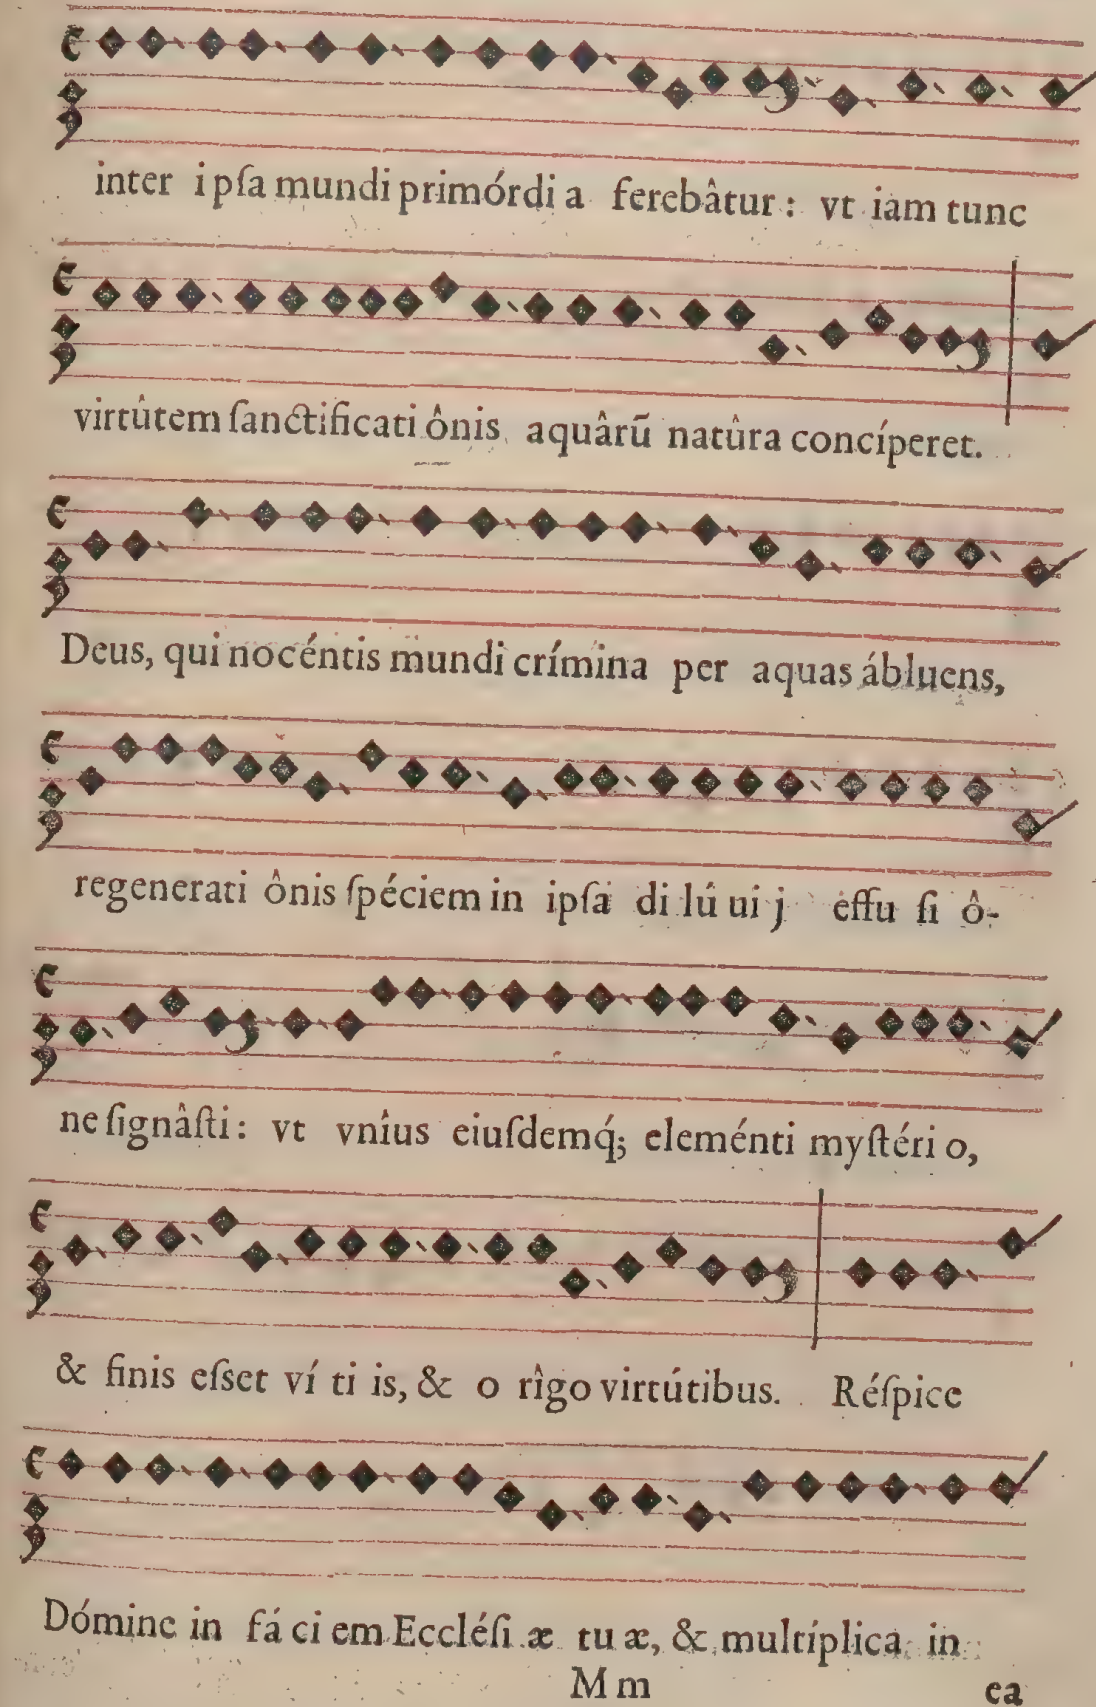 inter ipſa mundi primórdi a ferebâtur : vt iam tunc
virtûtem ſanctificati ônis aquârū natûra concíperet.
Deus, qui nocéntis mundi crímina per aquas ábluens,
regenerati ônis ſpéciem in ipſa di lú ui j effu ſi ô-
ne ſignâſti : vt vnîus eiuſdemq́; eleménti myſtéri o,
& finis eſset ví ti is, & o rîgo virtútibus. Réſpice
Dómine in fá ci em Eccléſi æ tu æ, & multíplica in
M m
ea